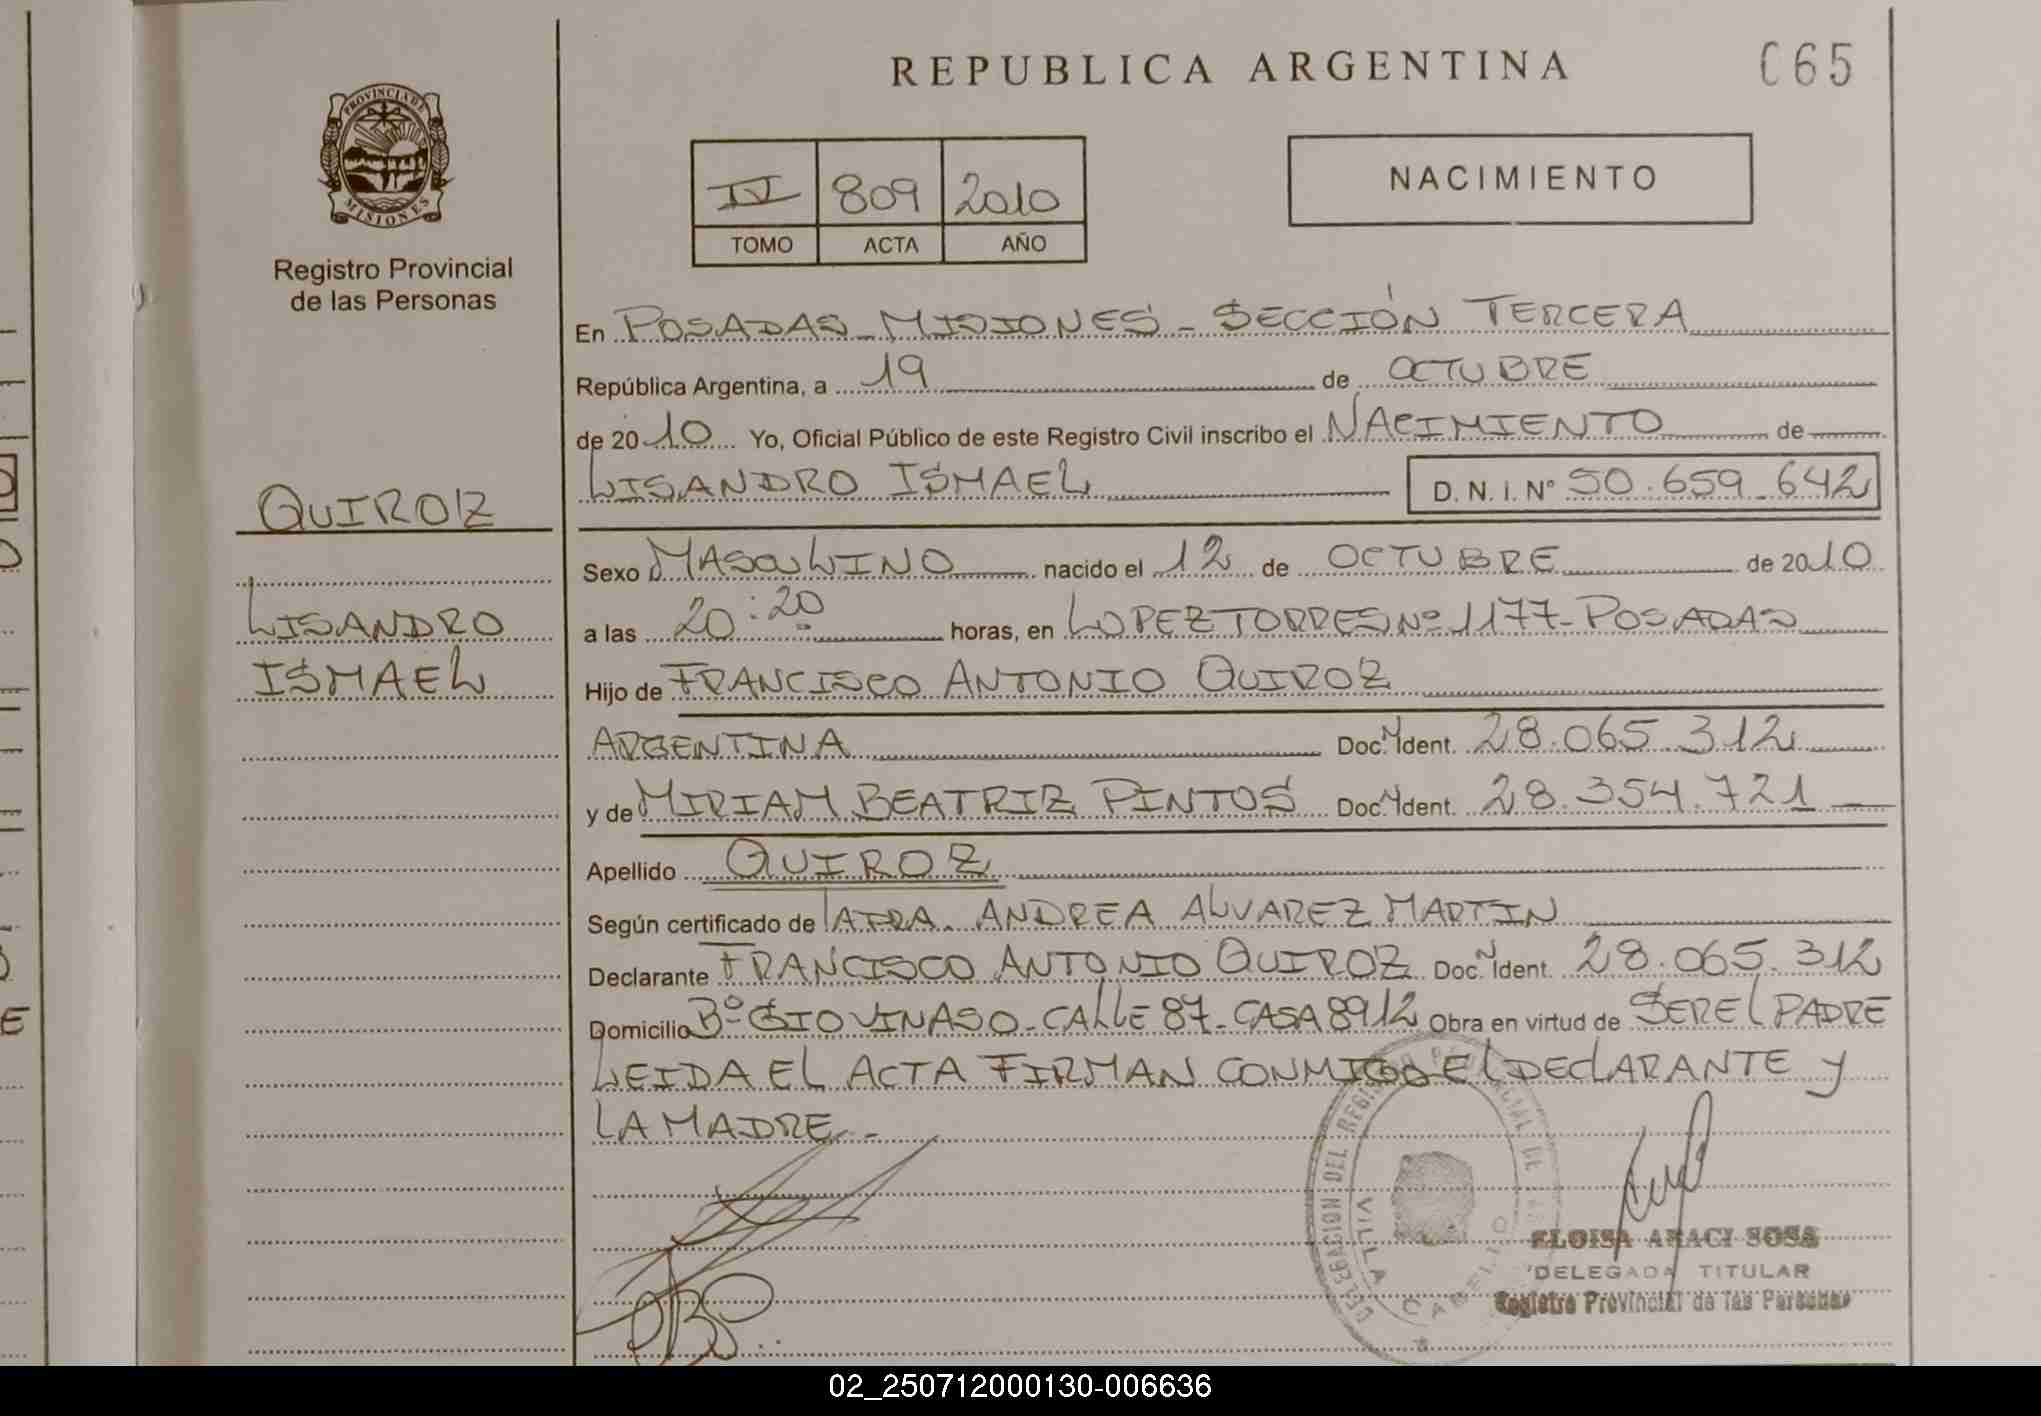 REPUBLICA ARGENTINA
C65
PROVINCIA DE
MISIONES
Registro Provincial
de las Personas
IV 809 2010
TOMO ACTA AÑO
NACIMIENTO
En POSADAS - MISIONES - SECCIÓN TERCERA
República Argentina, a 19 de OCTUBRE
de 2010 Yo, Oficial Público de este Registro Civil inscribo el NACIMIENTO de
LISANDRO ISMAEL D. N. I. Nº 50.659.642
QUIROZ
LISANDRO
ISMAEL
Sexo MASCULINO nacido el 12 de OCTUBRE de 2010
a las 20:20 horas, en LOPEZ TORRES Nº 1177 - POSADAS
Hijo de FRANCISCO ANTONIO QUIROZ
ARGENTINA Doc. Ident. 28.065.312
y de MIRIAM BEATRIZ PINTOS Doc. Ident. 28.354.721
Apellido QUIROZ
Según certificado de ANDREA ALVAREZ MARTIN
Declarante FRANCISCO ANTONIO QUIROZ Doc. Ident. 28.065.312
Domicilio Bº GIOVINASO - CALLE 87 - CASA 8912 Obra en virtud de SER EL PADRE
LEIDA EL ACTA FIRMAN CONMIGO EL DECLARANTE Y
LA MADRE. -
DELEGACION DEL REGISTRO PROVINCIAL DE
VILLA CABELLO
ELOISA ARACI SOSA
DELEGADA TITULAR
Registro Provincial de las Personas
02_250712000130-006636